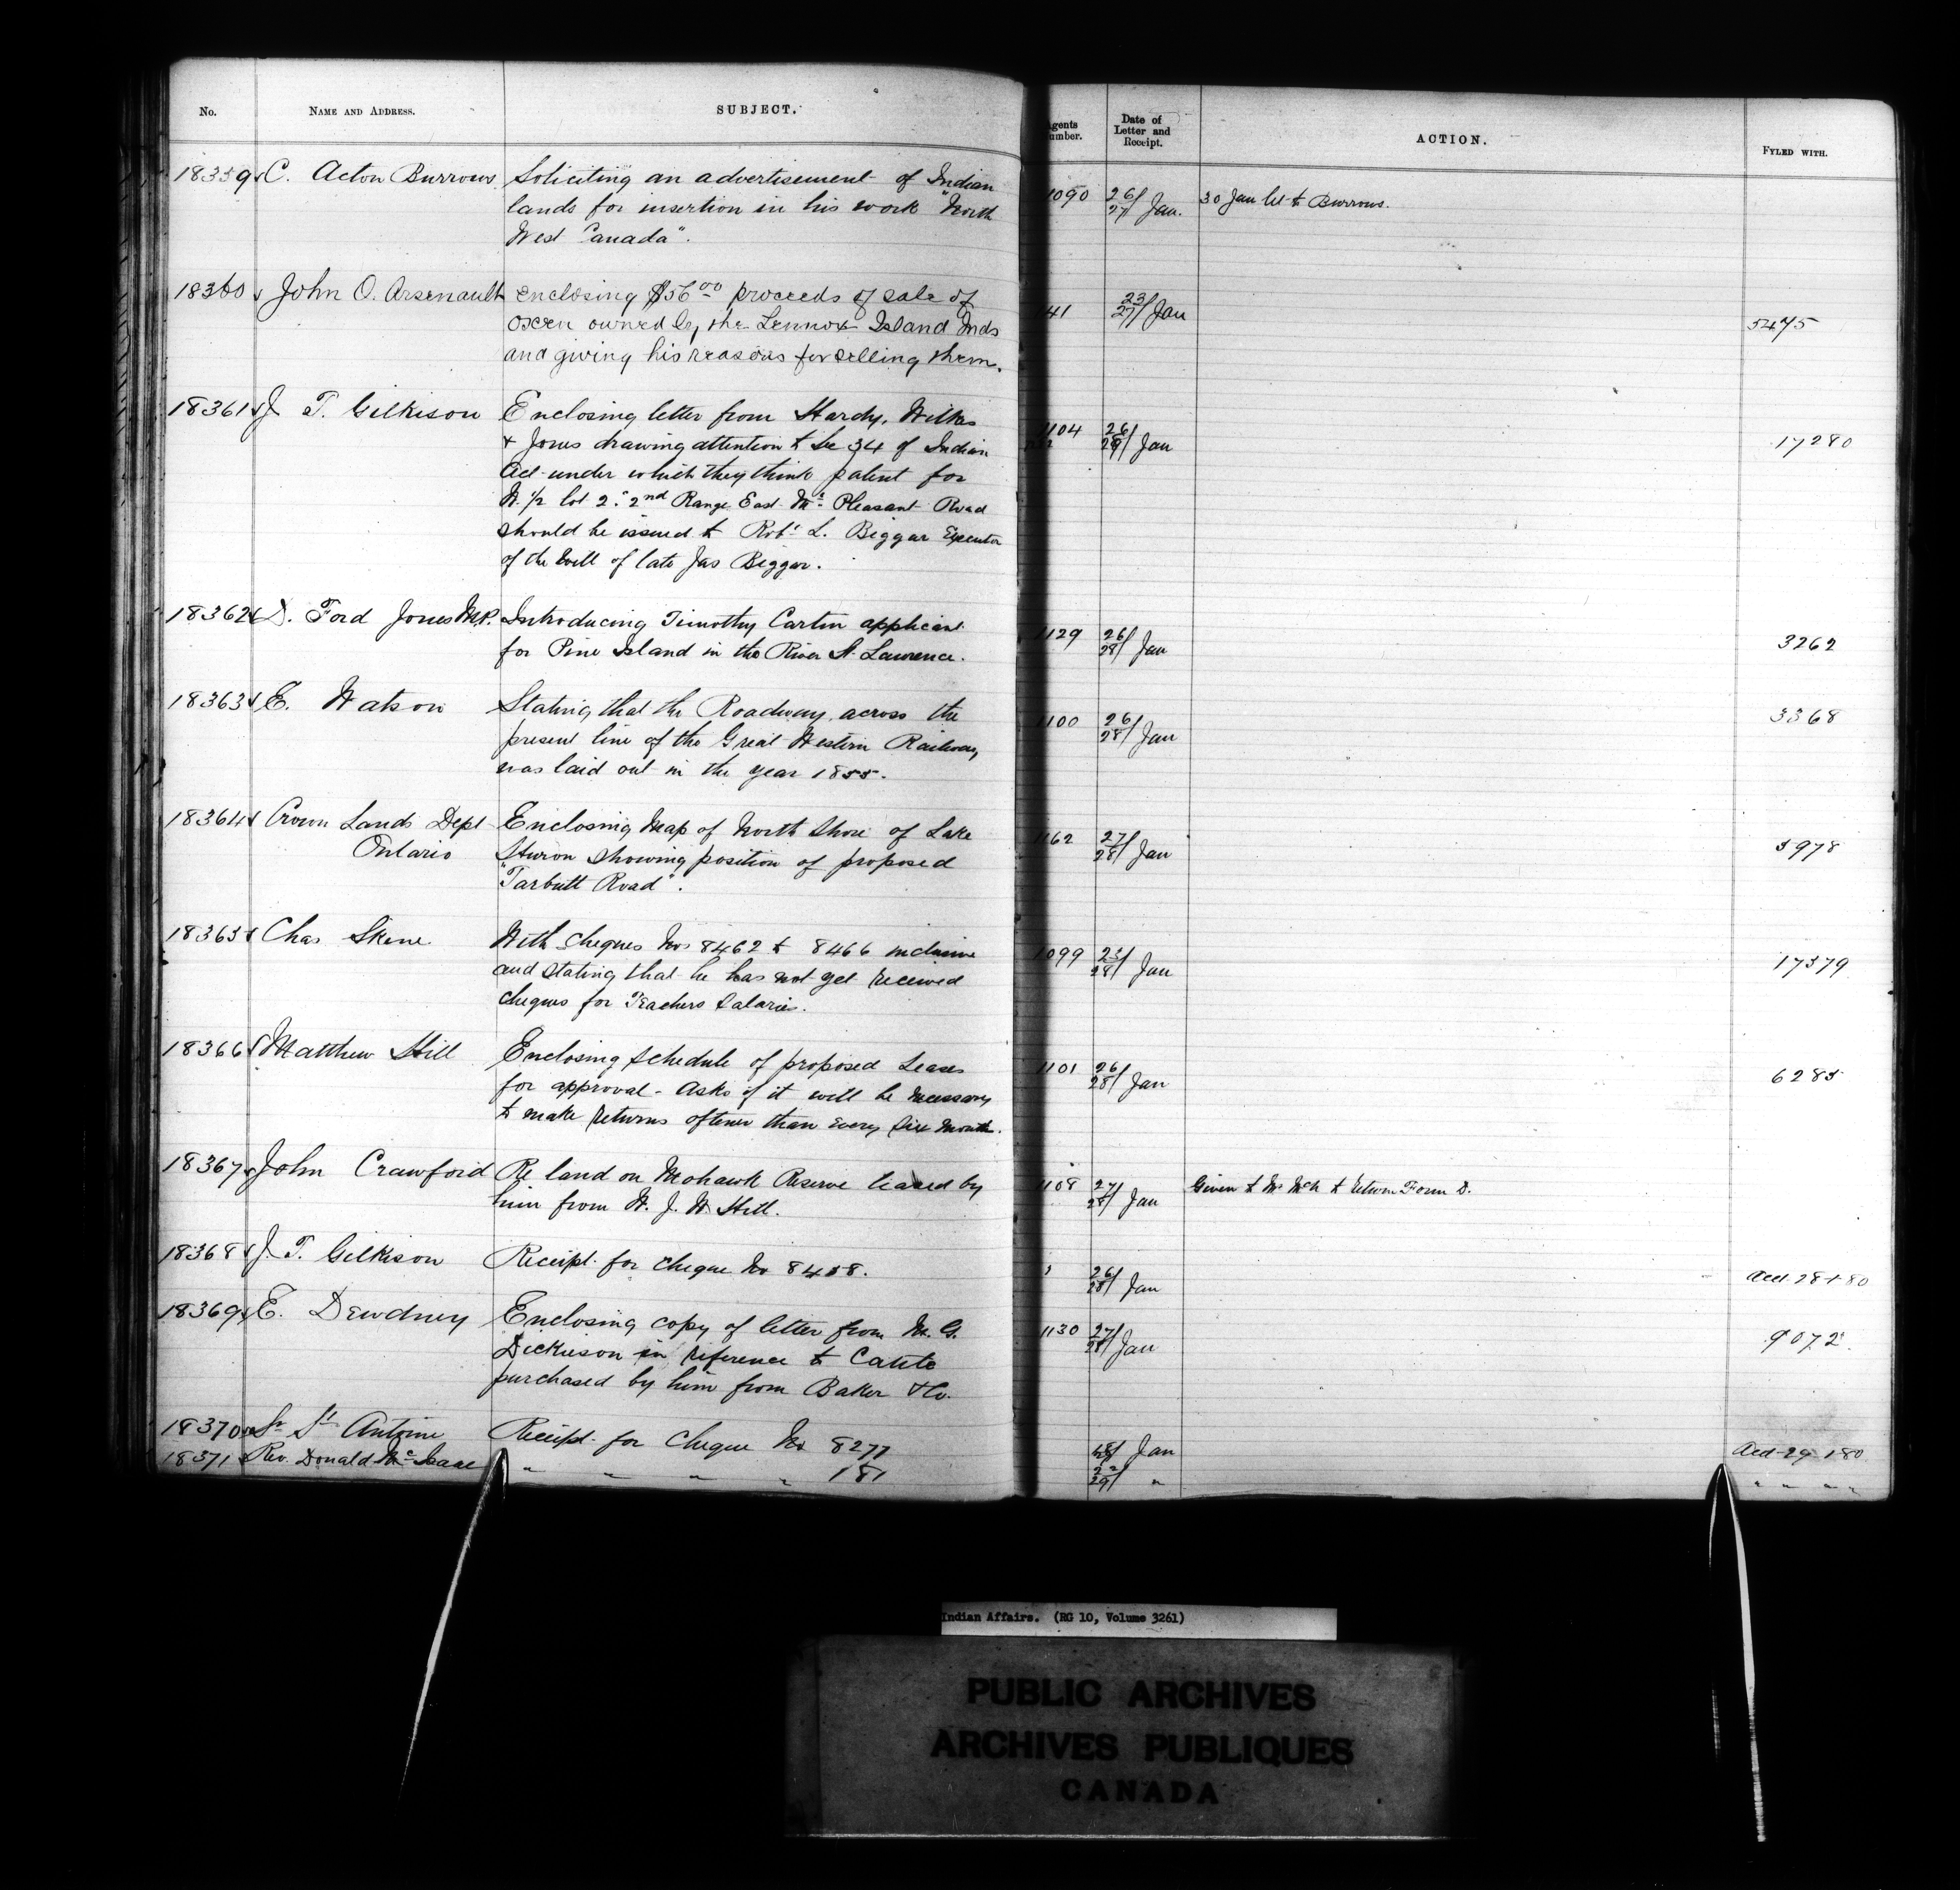 No. NAME AND ADDRESS. SUBJECT. Agents Number. Date of Letter and Receipt. ACTION. FYLED WITH.
18359 C. Acton Burrows Soliciting an advertisement of Indian 1090 26/27 Jan. 30 Jan let to Burrows.
lands for insertion in his work "North
West Canada".
18360 John O. Arsenault enclosing $56 00 proceeds of sale of 41 23/27 Jan 5475
oxen owned by the Lennox Island Inds
and giving his reasons for selling them.
18361 J. T. Gilkison Enclosing letter from Hardy, Wilkes 1104 26/28 Jan 17280
& Jones drawing attention to Sec 34 of Indian
Act under which they think patent for
N. 1/2 lot 2. 2nd Range East Mt Pleasant Road
should be issued to Robt L. Biggar Executor
of the Will of late Jas Biggar.
18362 D. Ford Jones M.P. Introducing Timothy Carlin applicant 1129 26/28 Jan 3262
for Pine Island in the River St. Lawrence.
18363 E. Watson Stating that the Roadway across the 1100 26/28 Jan 3368
present line of the Great Western Railway
was laid out in the year 1855.
18364 Crown Lands Dept Enclosing Map of North Shore of Lake 1162 27/28 Jan 5978
Ontario Huron showing position of proposed
"Tarbutt Road".
18365 Chas Skene With cheques Nos 8462 to 8466 inclusive 1099 23/28 Jan 17379
and stating that he has not yet received
cheques for Teachers Salaries.
18366 Matthew Hill Enclosing schedule of proposed Leases 1101 26/28 Jan 6285
for approval - asks if it will be necessary
to make returns oftener than every six month.
18367 John Crawford Re land on Mohawk Reserve leased by 1108 27/28 Jan Given to Mr McN to return Form D.
him from W. J. W. Hill.
18368 J. T. Gilkison Receipt for cheque No 8458. 26/28 Jan Acct 28-1-80
18369 E. Dewdney Enclosing copy of letter from M. G. 1130 27/28 Jan 9072
Dickieson in reference to Cattle
purchased by him from Baker & Co.
18370 Dr St Antoine Receipt for Cheque No 8277 28/ Jan Acct 29 1-80
18371 Rev. Donald McIsaac " " " " 181 22/29 " " " "
Indian Affairs. (RG 10, Volume 3261)
PUBLIC ARCHIVES
ARCHIVES PUBLIQUES
CANADA